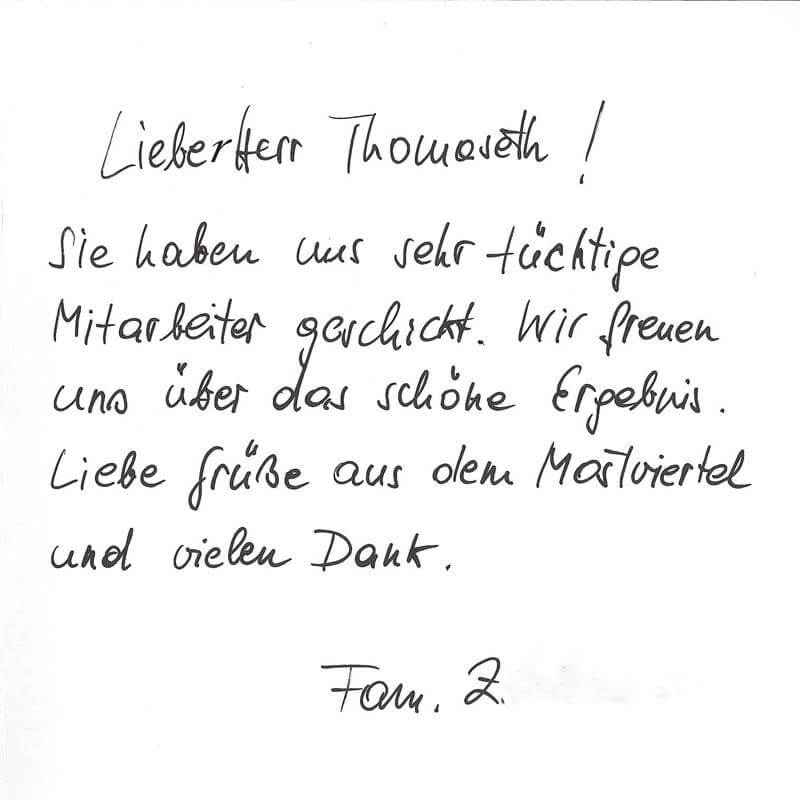 Lieber Herr Thomaseth!
Sie haben uns sehr tüchtige
Mitarbeiter geschickt. Wir freuen
uns über das schöne Ergebnis.
Liebe Grüße aus dem Mostviertel
und vielen Dank.
Fam. Z.